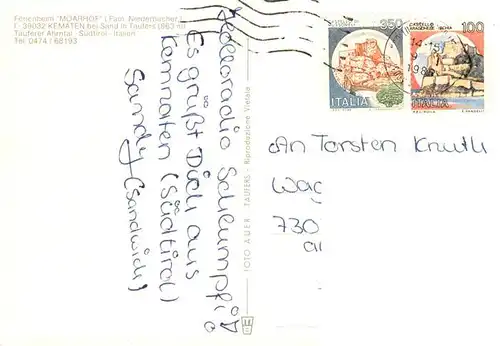 Ferienheim "MOARHOF" (Fam. Niederbacher)
I - 39032 KEMATEN bei Sand in Taufers (863 m)
Tauferer Ahrntal - Südtirol - Italien
Tel. 0474 / 68193
350
ITALIA
CASTELLO
ISCHIA
100
ITALIA
1986
Es grüßt Dich aus
Kematen (Südtirol)
Sandy (Sandwich)
FOTO AUER TAUFERS - Riproduzione vietata
An Torsten Knuth
Wac
730